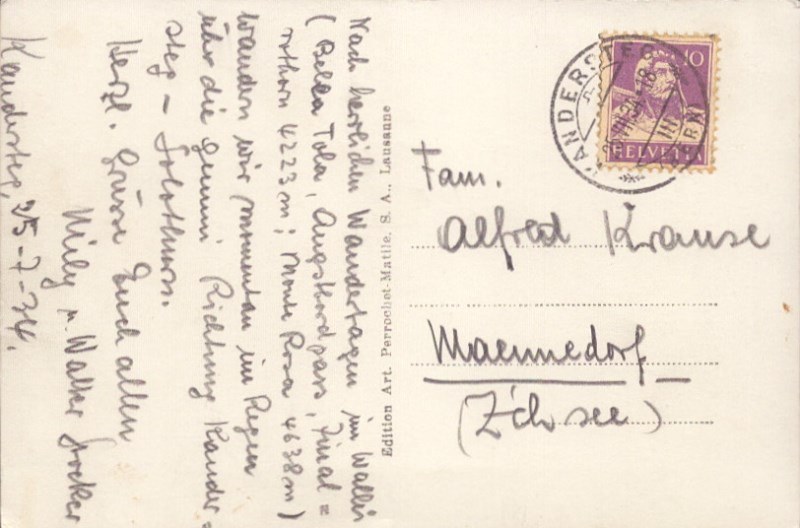 Nach herrlichen Wandertagen im Wallis
(Bella Tola, Augstbordpass, Zinal=
rothorn 4223 m; Monte Rosa 4638 m)
wandern wir momentan im Regen
über die Gemmi Richtung Kander=
steg – Solothurn.
Herzl. Grüsse Euch allen
Mily u. Walter Stocker
Kandersteg, 25-7-34.
Edition Art. Perrochet-Matile, S. A., Lausanne
KANDERSTEG
(BERN)
25.VII.34-18
III
10
HELVETIA
Fam.
Alfred Krause
Maennedorf
(Z'ch see)